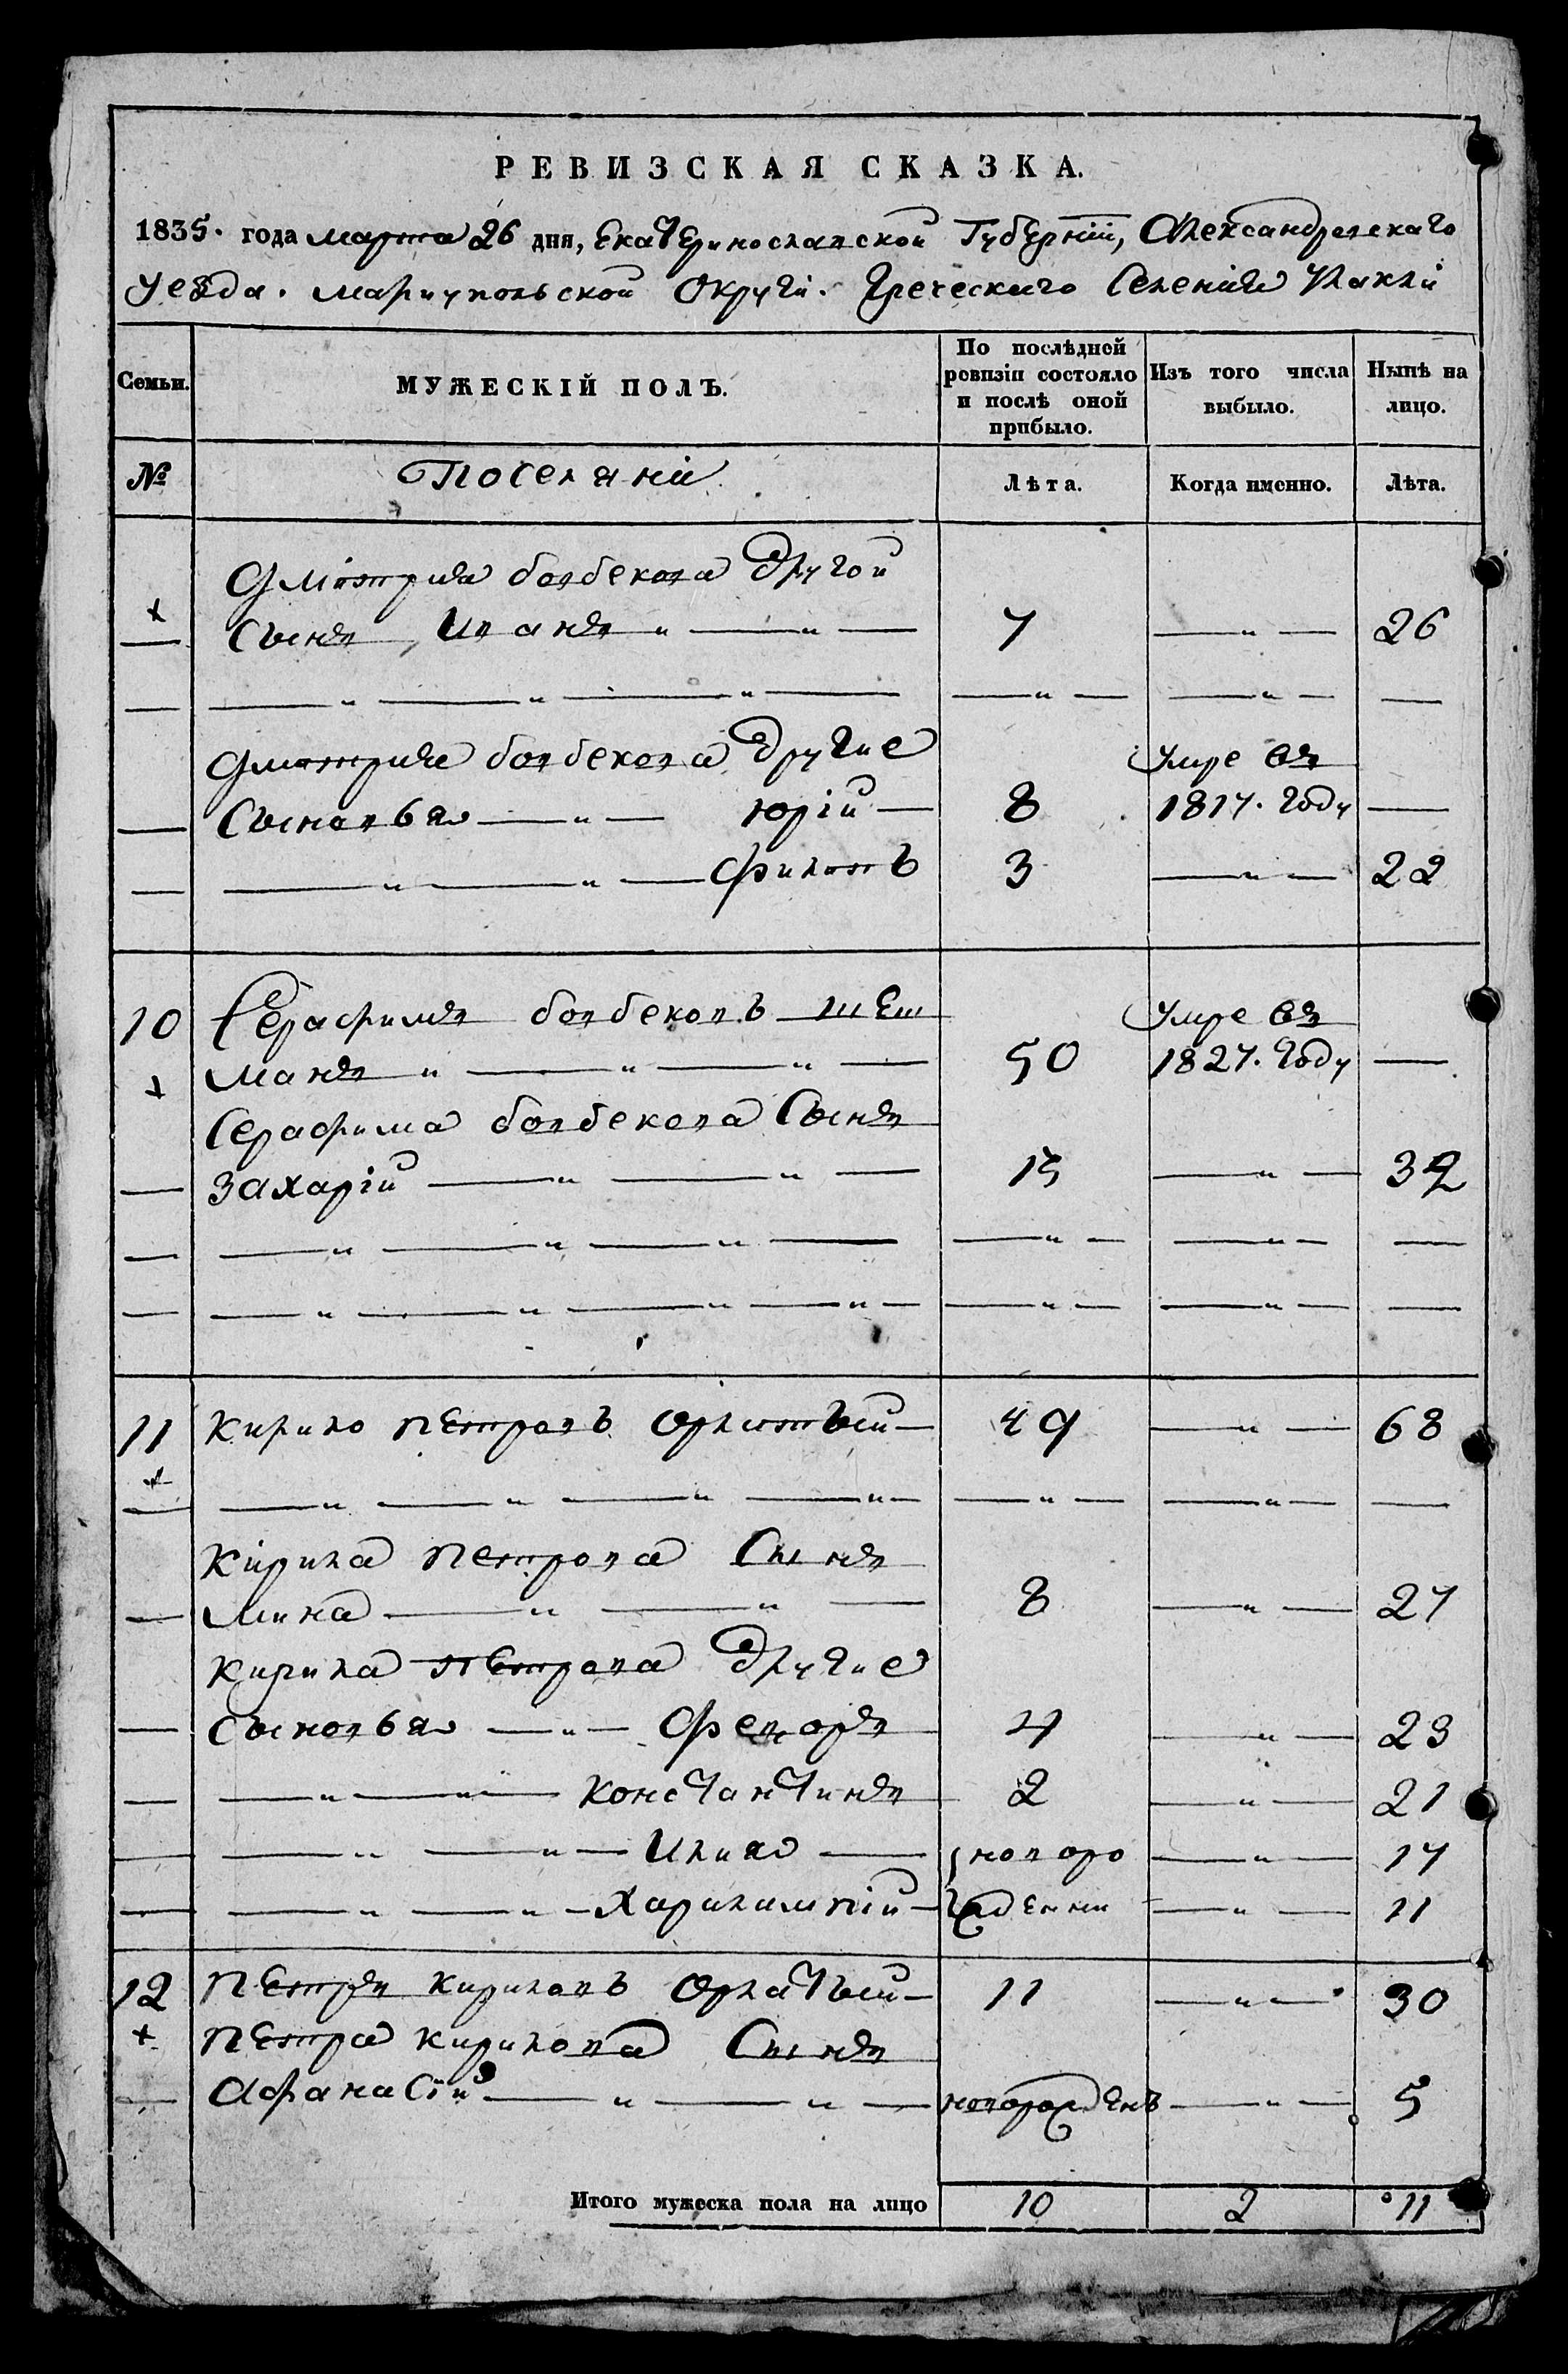 РЕВИЗСКАЯ СКАЗКА.
1835. года марта 26 дня, Екатеринославской Губерніи, Александровскаго
Уезда. Мариупольской Округи. Греческаго Селения Улаклы
Семьи. МУЖЕСКІЙ ПОЛЪ. По послѣдней ревизіи состояло и послѣ оной прибыло. Изъ того числа выбыло. Нынѣ на лицо.
№ Поселяни Лѣта. Когда именно. Лѣта.
Дмитрия Бовбекова другой
+ Сынъ, Иванъ 7 — " — 26
— " — " — " —
Дмитрия Бовбекова другие Умре въ
Сыновья — " — Юрій — 8 1817. году —
— " — " — Филипъ 3 — " — 22
10 Серафимъ Бовбековъ Шеш Умре въ
+ манъ " — " — " — 50 1827. году —
Серафима Бовбекова Сынъ
Захарій — " — " — 13 — " — 32
— " — " — " —
— " — " — " — " —
11 Кирило Петровъ 49 — " — 68
+ — " — " — " — " —
Кирила Петрова Сынъ
Мина — " — " — 8 — " — 27
Кирила Петрова другие
Сыновья — " — Федоръ 4 — " — 23
— " — " — Константинъ 2 — " — 21
— " — " — Илия — новоро — " — 17
— " — " — Харлампій — жденни — " — 11
12 Петръ Кириловъ 11 — " — 30
+ Петра Кирилова Сынъ
Афанасій — " — " — новорожденъ — " — 5
Итого мужеска пола на лицо 10 2 11